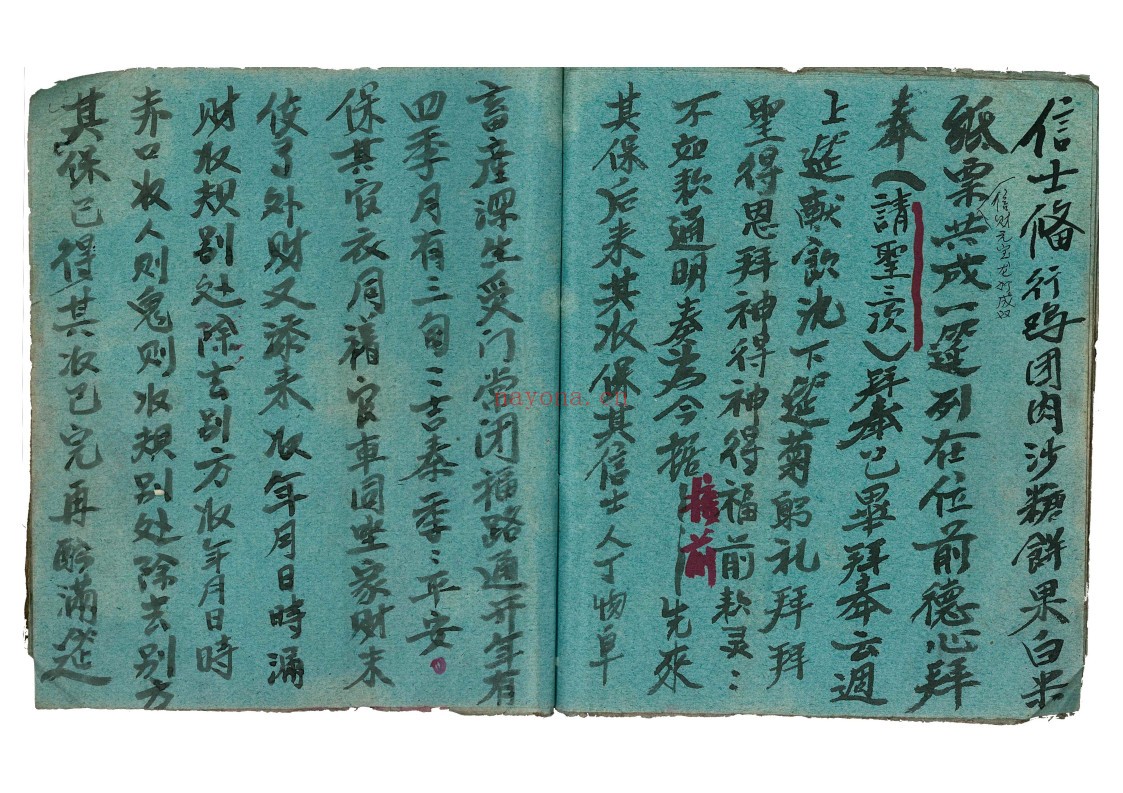 信士俻行鸡团肉沙糖餅果白米
紙票共成一筵列在位前德心拜
信财元宝
奉（請聖三次）拜奉已畢拜奉云週
上筵献飲沈下筵菊躬礼拜拜
聖得恩拜神得神得福前款灵〻
不如款通明奏为今据 前先來
其保后来其收保其信士人丁物阜
畜産深生受门当闭福路通开年有
四季月有三旬三吉泰季〻平安。
保其官衣同禧官車回坐家财未
使了外财又添来收年月日時满
财收规别处除去别方收年月日時
赤口收人则鬼则收规别处除去别方
其保已得其收已完再酌满筵
nayona.cn